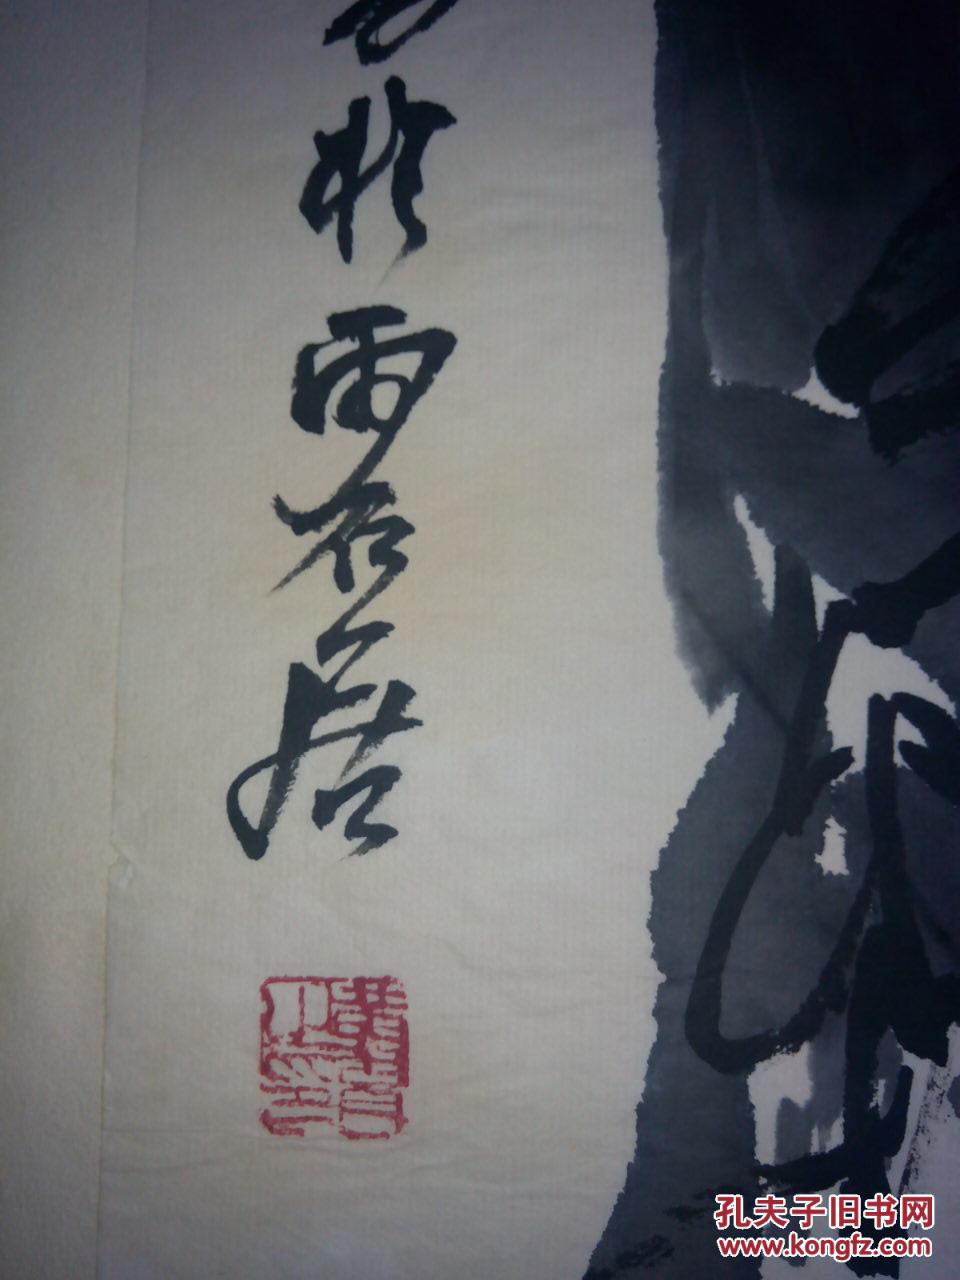 於雨石居
孔夫子旧书网
www.kongfz.com